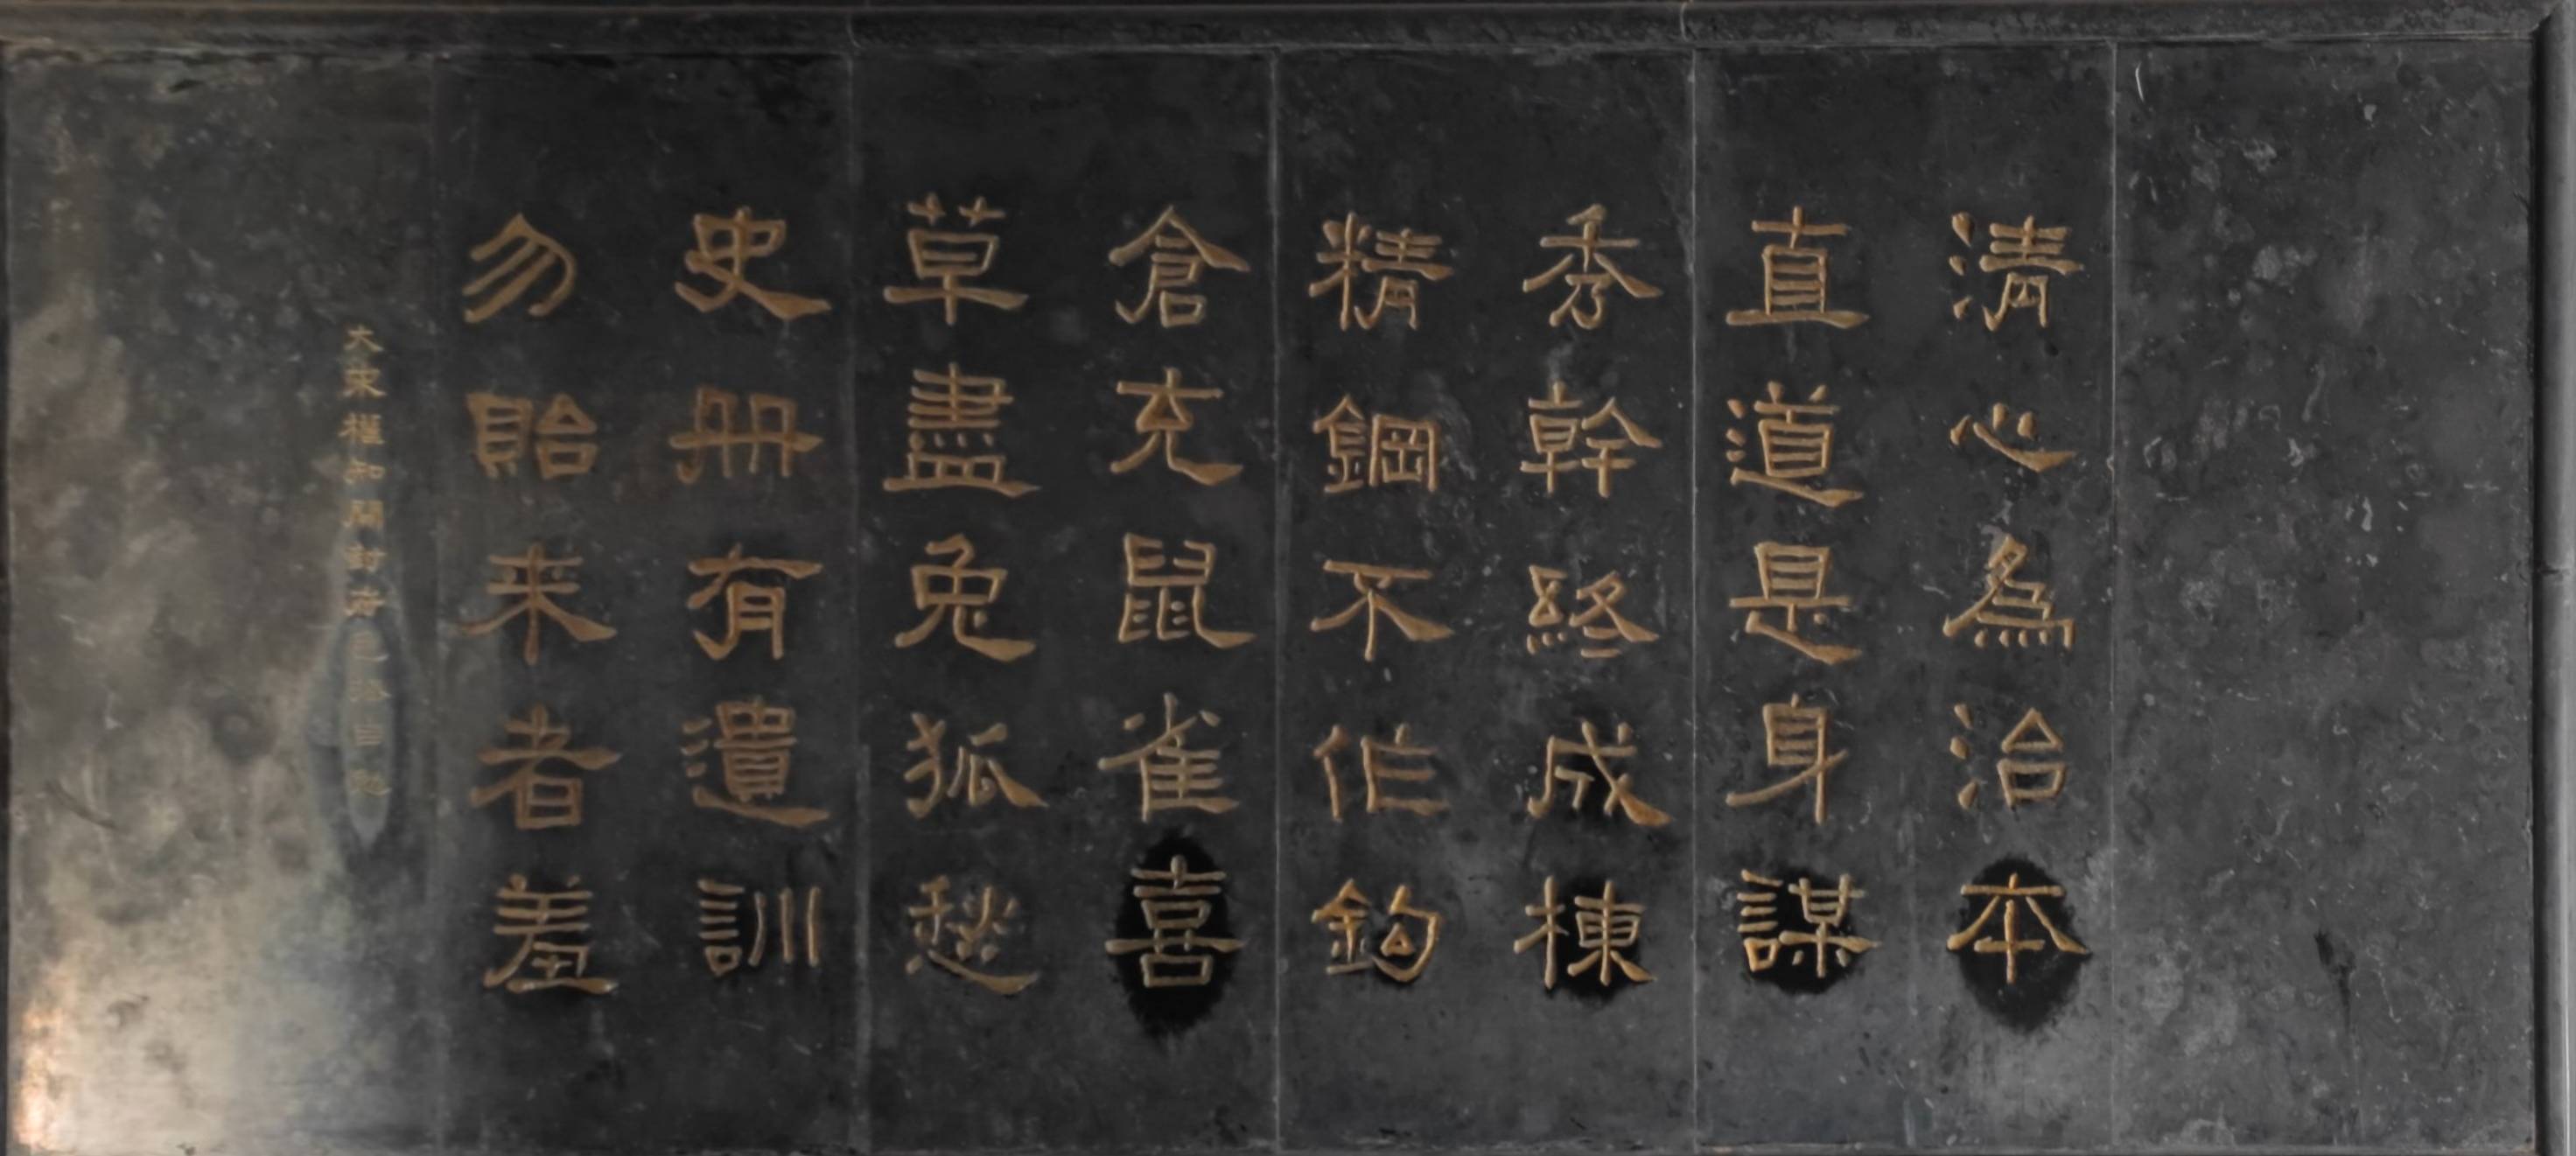 清心為治本
直道是身謀
秀幹終成棟
精鋼不作鈎
倉充鼠雀喜
草盡兔狐愁
史冊有遺訓
勿貽来者羞
大宋權知開封府包公自勉